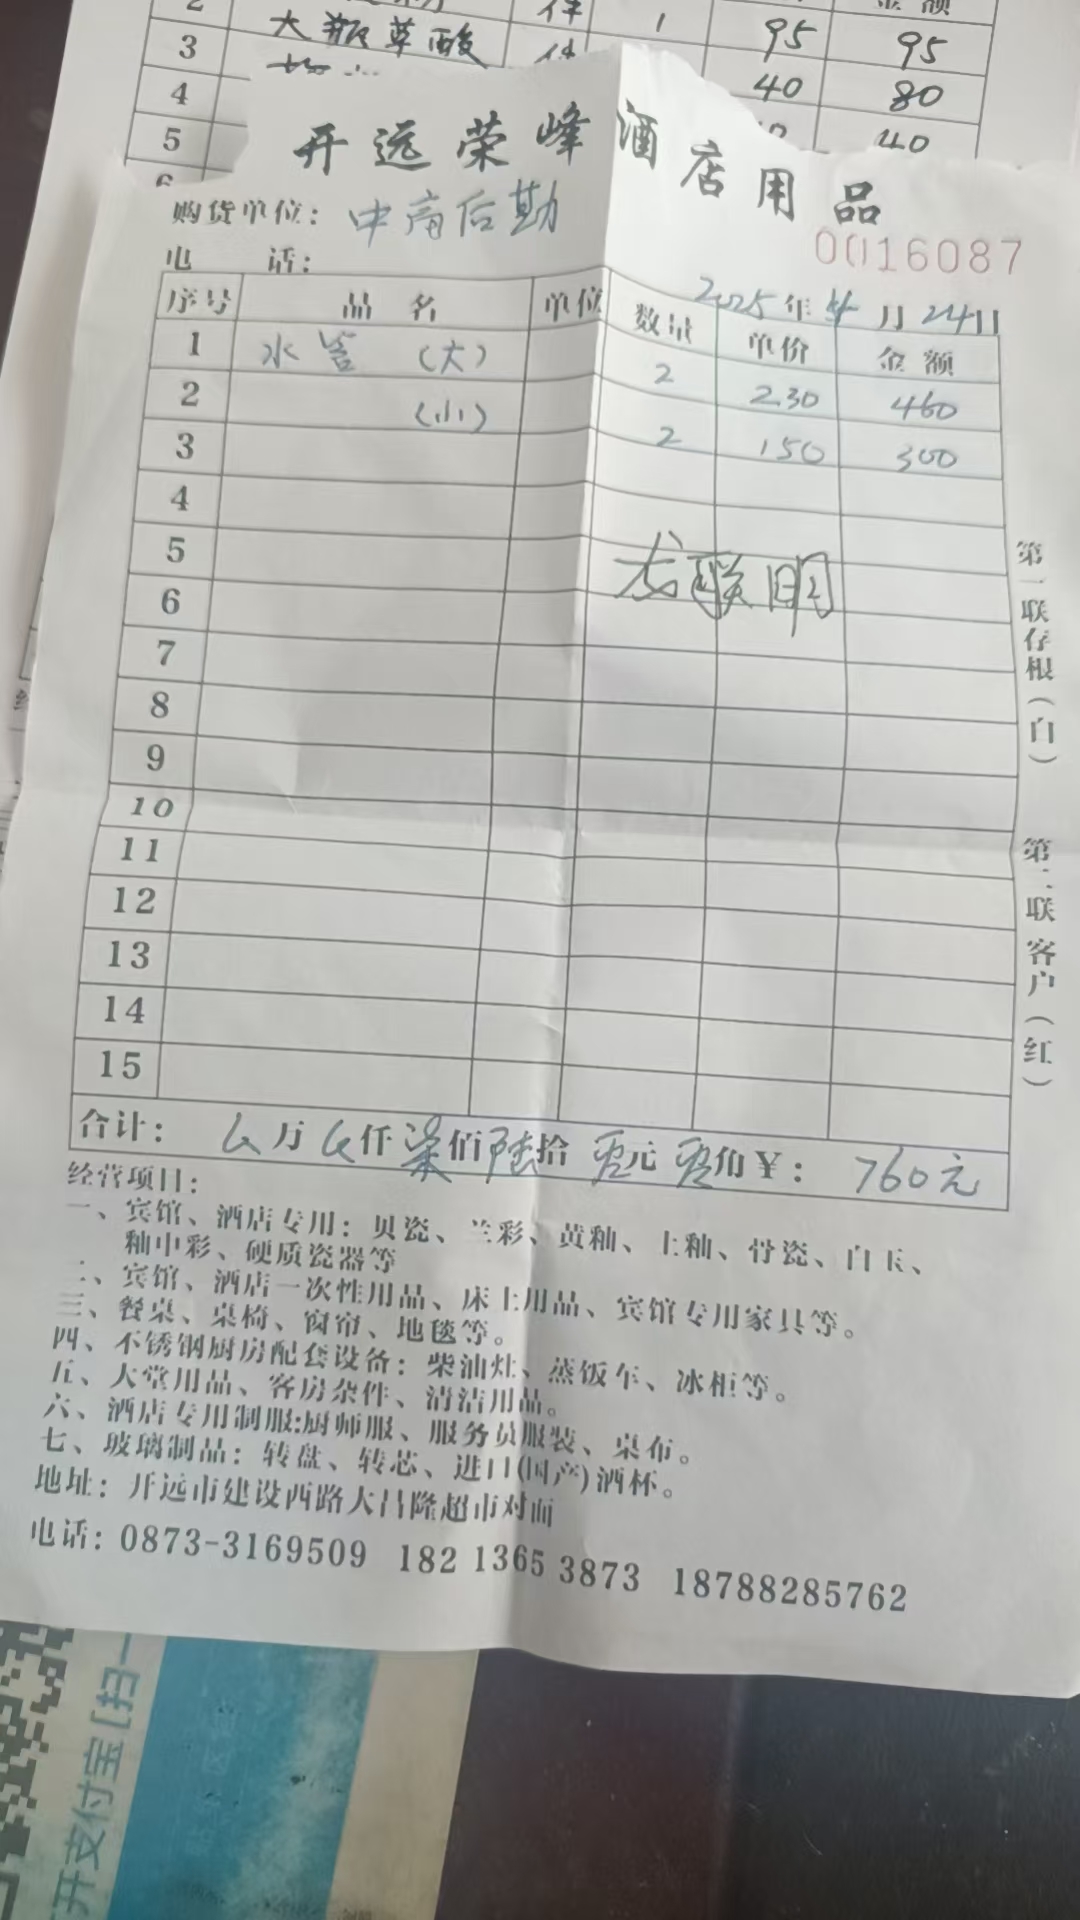 2 件 金额
3 大瓶草酸 件 1 95 95
4 40 80
5 40
6
开远荣峰酒店用品
购货单位：中商后勤
0016087
电 话：
2025年4月24日
序号 品名 单位 数量 单价 金额
1 水管 (大) 2 230 460
2 (小) 2 150 300
3
4
5
6
7
8
9
10
11
12
13
14
15
龙联明
第一联存根（白） 第二联客户（红）
合计： 万 仟 柒佰 陆拾 零元 零角￥： 760元
经营项目：
一、宾馆、酒店专用：贝瓷、兰彩、黄釉、土釉、骨瓷、白玉、
釉中彩、硬质瓷器等
二、宾馆、酒店一次性用品、床上用品、宾馆专用家具等。
三、餐桌、桌椅、窗帘、地毯等。
四、不锈钢厨房配套设备：柴油灶、蒸饭车、冰柜等。
五、大堂用品、客房杂件、清洁用品。
六、酒店专用制服:厨师服、服务员服装、桌布。
七、玻璃制品：转盘、转芯、进口(国产)酒杯。
地址：开远市建设西路大昌隆超市对面
电话：0873-3169509 182 1365 3873 18788285762
开支付宝[扫一